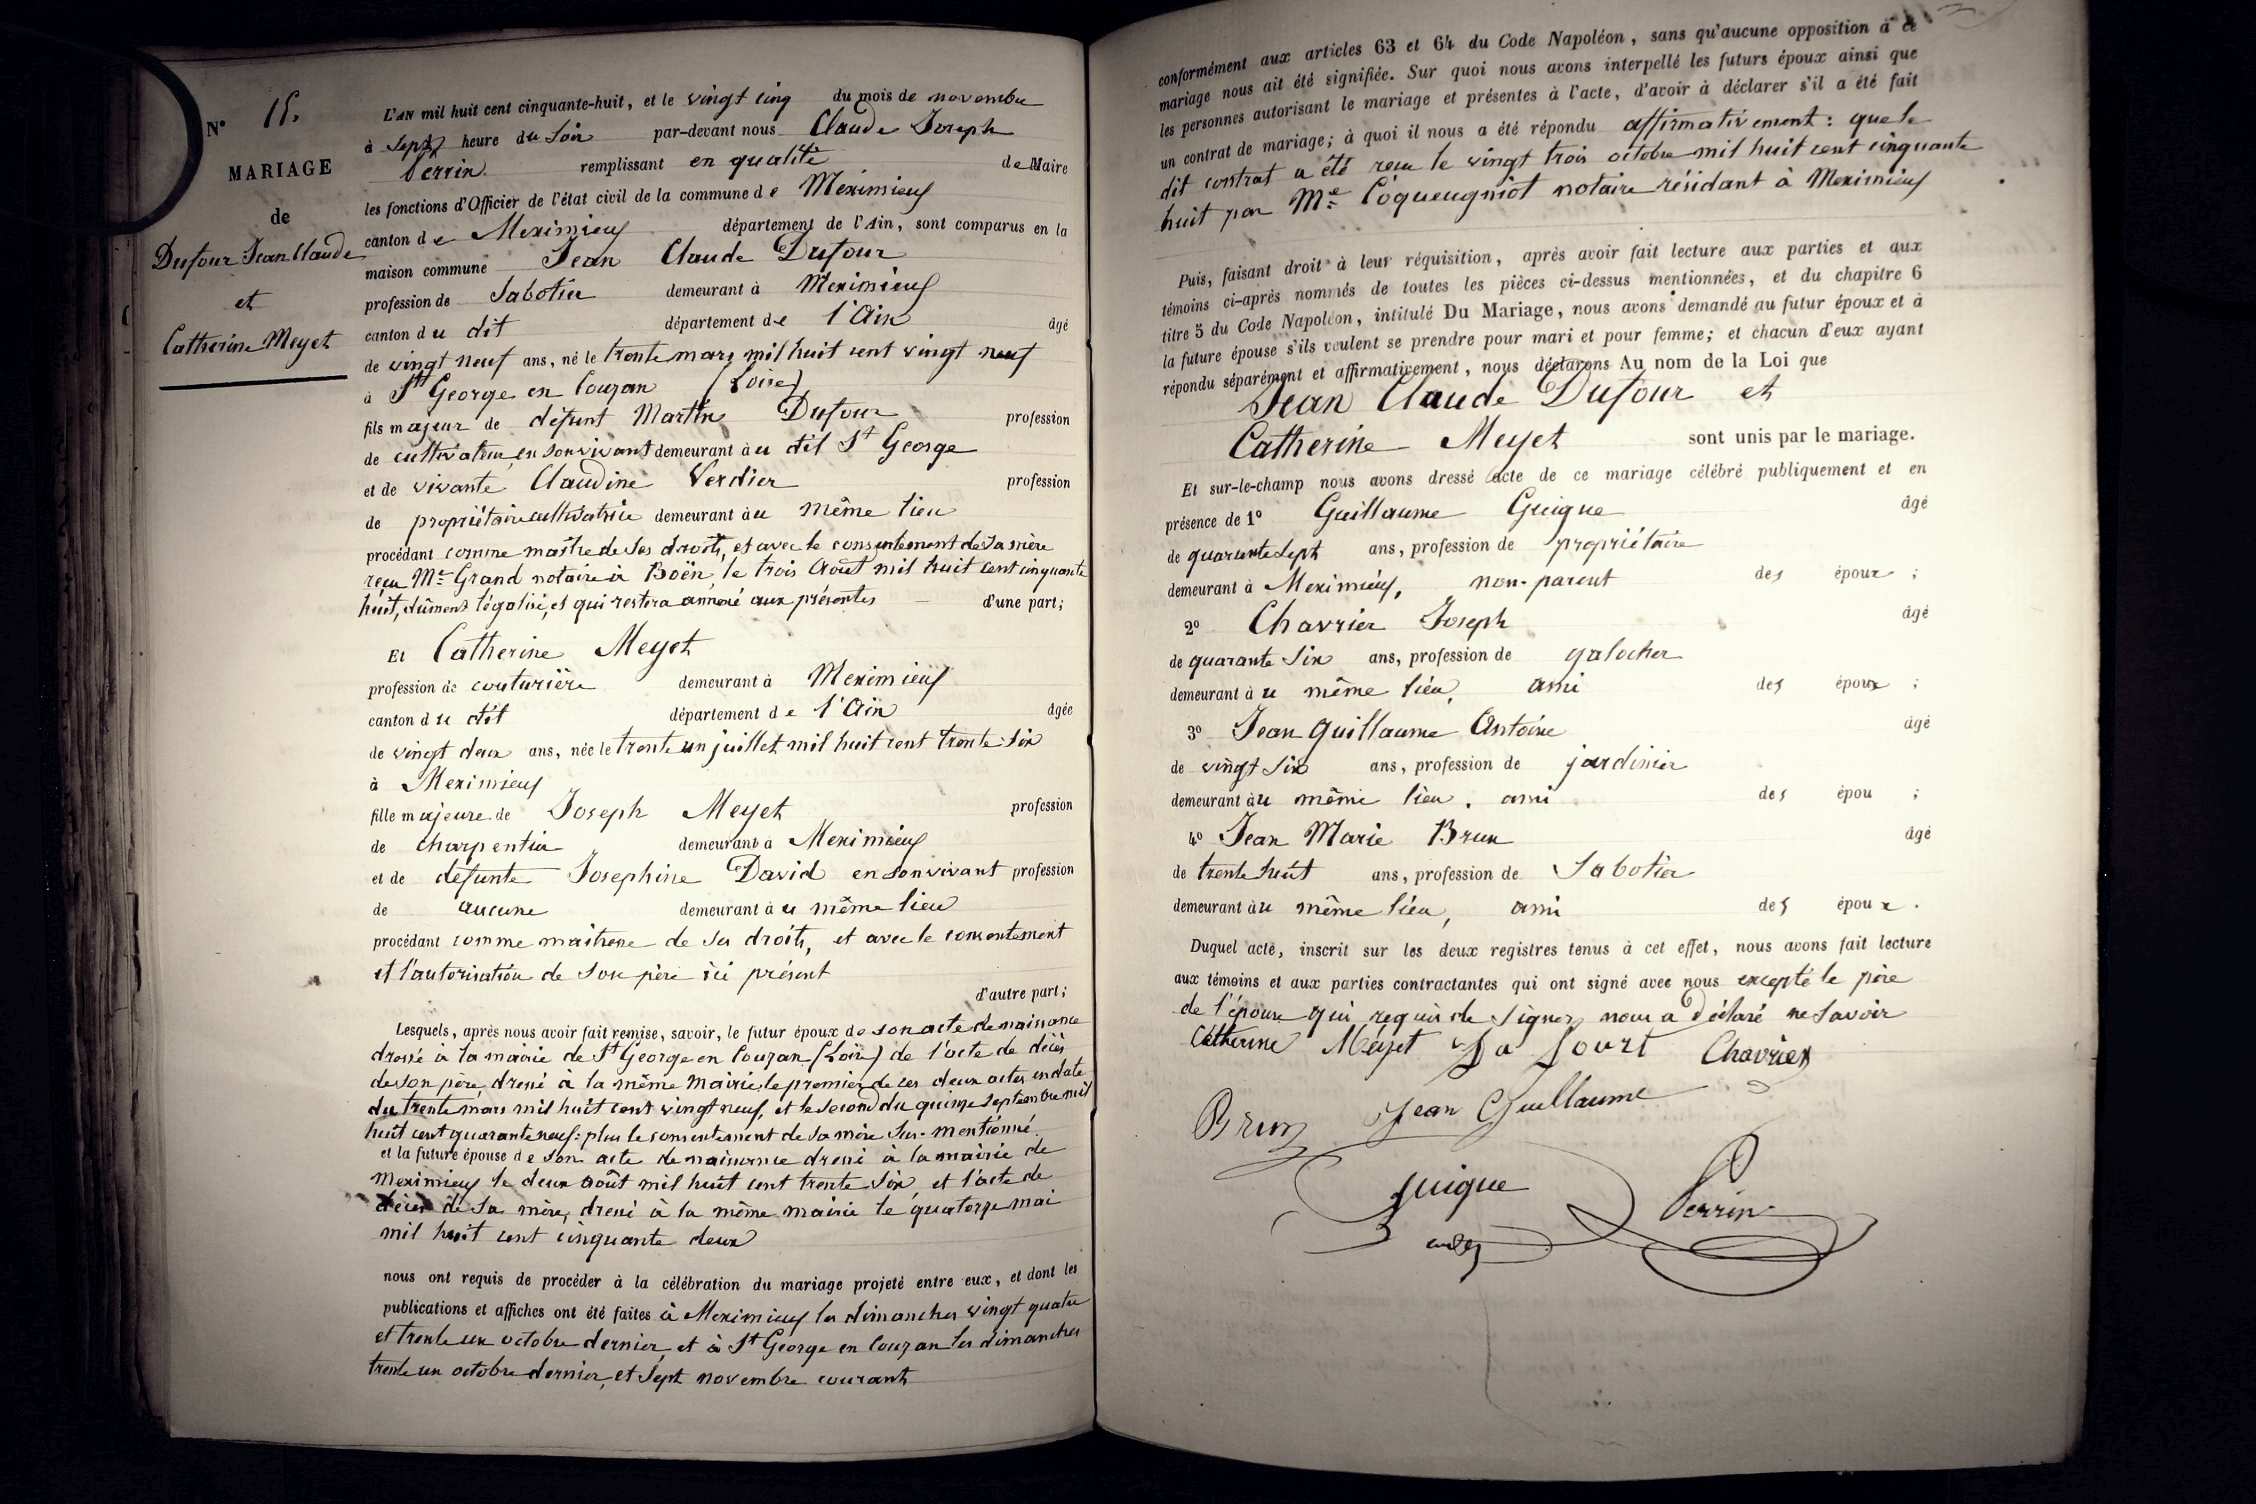 N° 15.
MARIAGE
de
Dufour Jean Claude
et
Catherine Meyet
L'AN mil huit cent cinquante-huit, et le vingt cinq du mois de novembre
à sept heure du soir par-devant nous Claude Joseph
Perrin remplissant en qualité de Maire
les fonctions d'Officier de l'état civil de la commune de Meximieux
canton de Meximieux département de l'Ain, sont comparus en la
maison commune Jean Claude Dufour
profession de Sabotier demeurant à Meximieux
canton du dit département de l'Ain âgé
de vingt neuf ans, né le trente mars mil huit cent vingt neuf
à St George en Couzan (Loire)
fils majeur de défunt Martin Dufour profession
de cultivateur, en son vivant demeurant au dit St George
et de vivante Claudine Verdier profession
de propriétaire cultivatrice demeurant au même lieu
procédant comme maître de ses droits, et avec le consentement de sa mère
reçu Me Grand notaire à Boën, le trois Août mil huit cent cinquante
huit, dûment légalisé, et qui restera annexé aux présentes d'une part;
Et Catherine Meyet
profession de couturière demeurant à Meximieux
canton du dit département de l'Ain âgée
de vingt deux ans, née le trente un juillet mil huit cent trente six
à Meximieux
fille majeure de Joseph Meyet profession
de charpentier demeurant à Meximieux
et de défunte Josephine David en son vivant profession
de aucune demeurant au même lieu
procédant comme maitresse de ses droits, et avec le consentement
et l'autorisation de son père ici présent
d'autre part;
Lesquels, après nous avoir fait remise, savoir, le futur époux de son acte de naissance
dressé à la mairie de St George en Couzan (Loire) de l'acte de décès
de son père, dressé à la même mairie, le premier de ces deux actes en date
du trente mars mil huit cent vingt neuf, et le second du quinze septembre mil
huit cent quarante neuf: plus le consentement de sa mère sus-mentionné.
et la future épouse de son acte de naissance dressé à la mairie de
Meximieux le deux août mil huit cent trente six, et l'acte de
décès de sa mère, dressé à la même mairie le quatorze mai
mil huit cent cinquante deux
nous ont requis de procéder à la célébration du mariage projeté entre eux, et dont les
publications et affiches ont été faites à Meximieux les dimanches vingt quatre
et trente un octobre dernier, et à St George en Couzan les dimanches
trente un octobre dernier, et sept novembre courant
conformément aux articles 63 et 64 du Code Napoléon, sans qu'aucune opposition à ce
mariage nous ait été signifiée. Sur quoi nous avons interpellé les futurs époux ainsi que
les personnes autorisant le mariage et présentes à l'acte, d'avoir à déclarer s'il a été fait
un contrat de mariage; à quoi il nous a été répondu affirmativement: que le
dit contrat a été reçu le vingt trois octobre mil huit cent cinquante
huit par Me Coqueugniot notaire résidant à Meximieux
Puis, faisant droit à leur réquisition, après avoir fait lecture aux parties et aux
témoins ci-après nommés de toutes les pièces ci-dessus mentionnées, et du chapitre 6
titre 5 du Code Napoléon, intitulé Du Mariage, nous avons demandé au futur époux et à
la future épouse s'ils veulent se prendre pour mari et pour femme; et chacun d'eux ayant
répondu séparément et affirmativement, nous déclarons Au nom de la Loi que
Jean Claude Dufour et
Catherine Meyet sont unis par le mariage.
Et sur-le-champ nous avons dressé acte de ce mariage célébré publiquement et en
présence de 1° Guillaume Guigue âgé
de quarante sept ans, profession de propriétaire
demeurant à Meximieux, non-parent des époux ;
2° Chavrier Joseph âgé
de quarante six ans, profession de galocher
demeurant au même lieu, ami des époux ;
3° Jean Guillaume Antoine âgé
de vingt six ans, profession de jardinier
demeurant au même lieu. ami des épou ;
4° Jean Marie Brun âgé
de trente huit ans, profession de Sabotier
demeurant au même lieu, ami des époux .
Duquel acte, inscrit sur les deux registres tenus à cet effet, nous avons fait lecture
aux témoins et aux parties contractantes qui ont signé avec nous excepté le père
de l'épouse qui requis de signer nous a déclaré ne savoir
Catherine Meyet Chavrier
Brun Jean Guillaume
Guigue Perrin